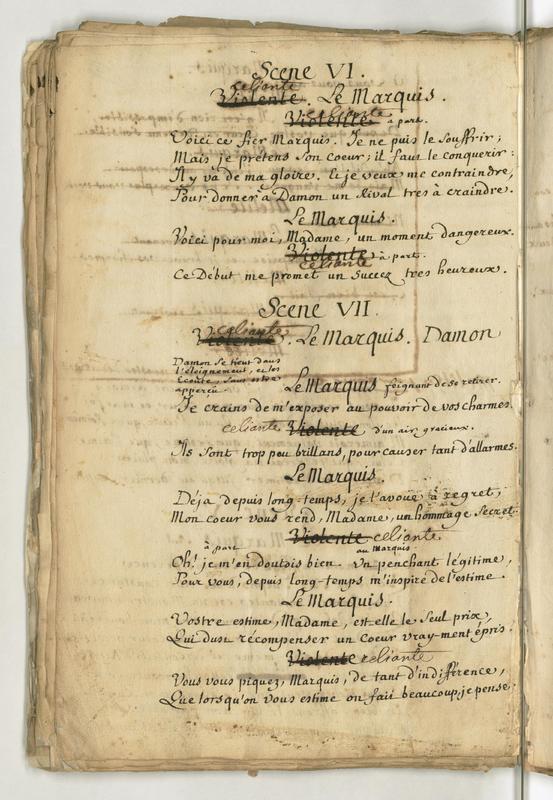 Scene VI.
celiante
Violente. Le Marquis.
Violente celiante à part.
Voici ce fier Marquis. Je ne puis le souffrir;
Mais je prétens son coeur; il faut le conquerir:
Il y va de ma gloire. Et je veux me contraindre,
Pour donner à Damon un Rival tres à craindre.
Le Marquis.
Voici pour moi, Madame, un moment dangereux.
Violente, à part.
celiante
Ce Début me promet un Succez tres heureux.
Scene VII.
celiante
Violente. Le Marquis. Damon
Damon se tient dans
l'éloignement, et les
Ecoute, sans estre
apperçu.
Le Marquis feignant de se retirer.
Je crains de m'exposer au pouvoir de vos charmes.
celiante Violente d'un air gracieux.
Ils sont trop peu brillans, pour causer tant d'allarmes.
Le Marquis.
Déja depuis long-temps, je l'avoüe à regret,
Mon coeur vous rend, Madame, un hommage secret.
Violente celiante
à part. au Marquis
Oh! je m'en doutois bien. Un penchant légitime,
Pour vous, depuis long-temps m'inspire de l'estime.
Le Marquis.
Vostre estime, Madame, est-elle le seul prix,
Qui dust récompenser un Coeur vray-ment épris.
Violente celiante
Vous vous piquez, Marquis, de tant d'indifférence,
Que lorsqu'on vous estime on fait beaucoup, je pense,